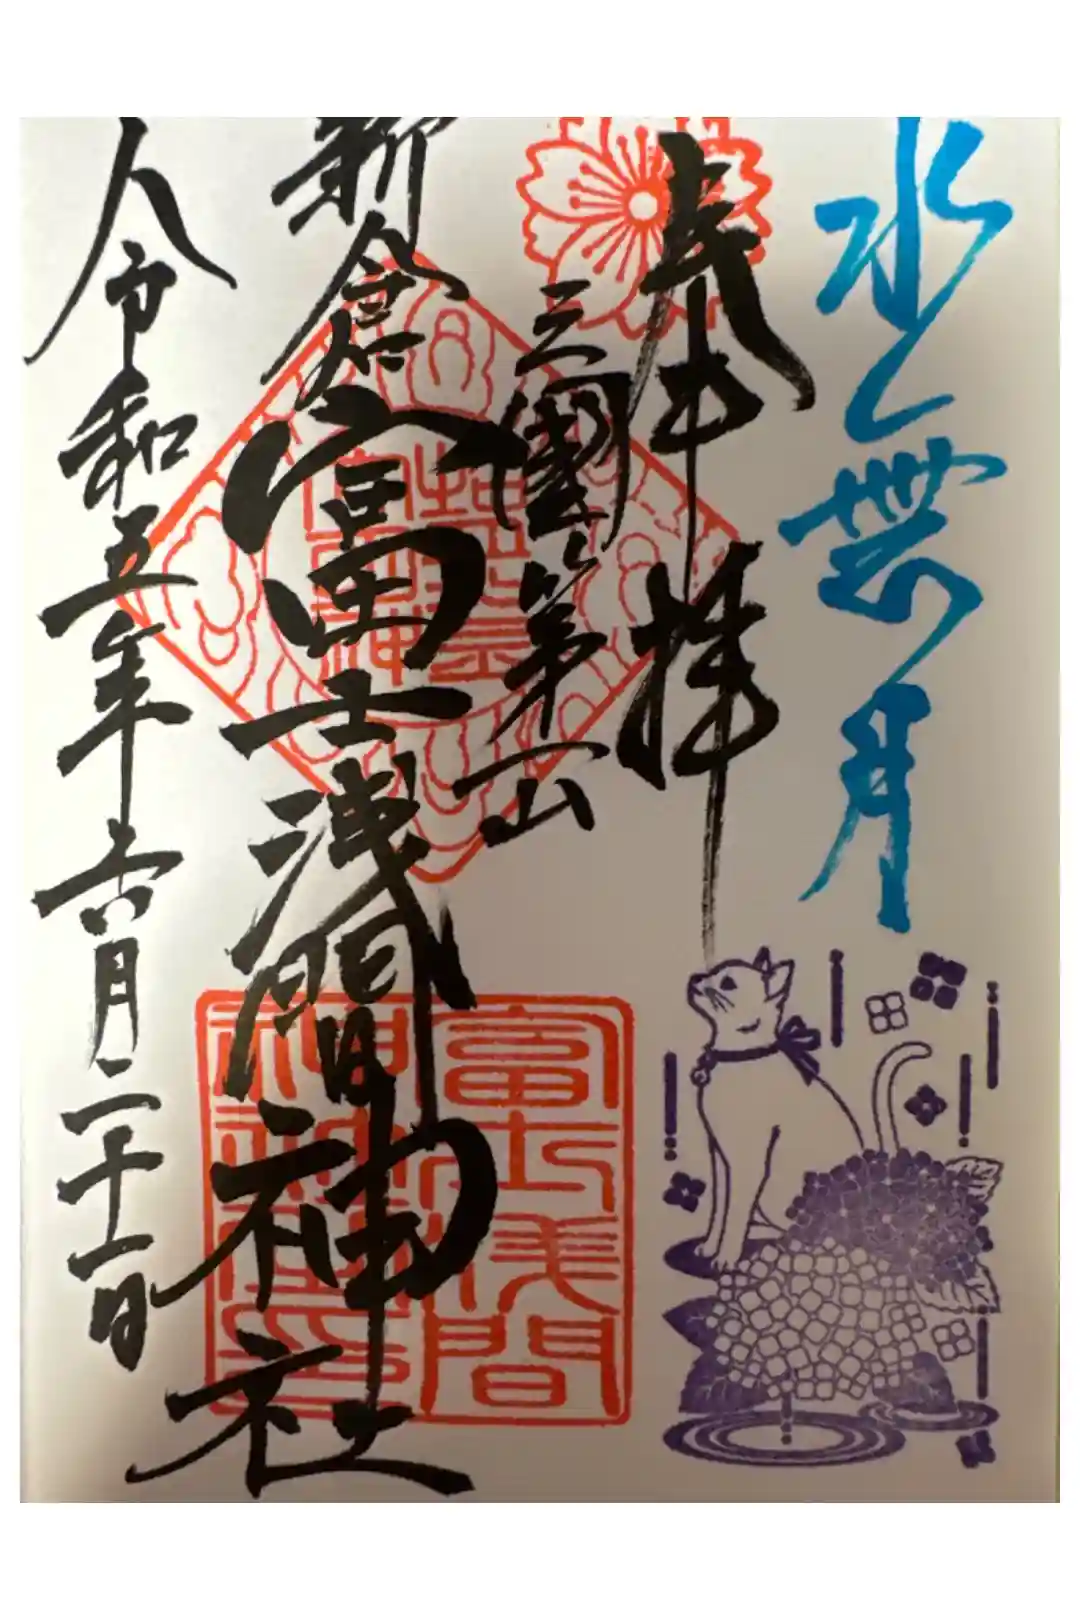 水無月
奉拝
三國第一山
新倉富士浅間神社
令和五年六月二十一日
富士浅間
神社